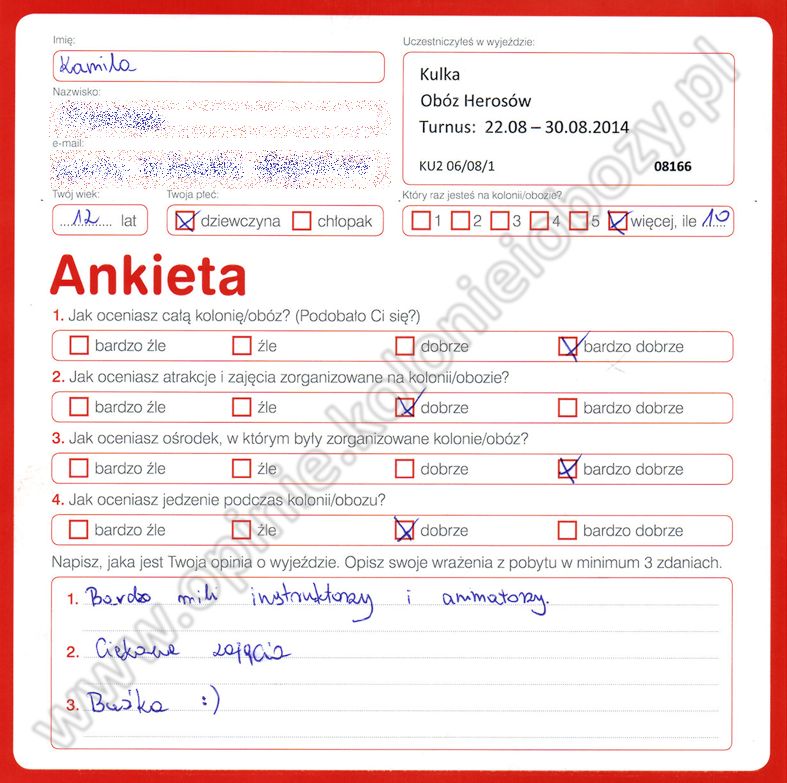 Imię:
Kamila
Nazwisko:
e-mail:
Twój wiek:
12 lat
Twoja płeć:
dziewczyna chłopak
Uczestniczyłeś w wyjeździe:
Kulka
Obóz Herosów
Turnus: 22.08 – 30.08.2014
KU2 06/08/1 08166
Który raz jesteś na kolonii/obozie?
1 2 3 4 5 więcej, ile 10
Ankieta
1. Jak oceniasz całą kolonię/obóz? (Podobało Ci się?)
bardzo źle źle dobrze bardzo dobrze
2. Jak oceniasz atrakcje i zajęcia zorganizowane na kolonii/obozie?
bardzo źle źle dobrze bardzo dobrze
3. Jak oceniasz ośrodek, w którym były zorganizowane kolonie/obóz?
bardzo źle źle dobrze bardzo dobrze
4. Jak oceniasz jedzenie podczas kolonii/obozu?
bardzo źle źle dobrze bardzo dobrze
Napisz, jaka jest Twoja opinia o wyjeździe. Opisz swoje wrażenia z pobytu w minimum 3 zdaniach.
1. Bardzo mili instruktorzy i animatorzy.
2. Ciekawe zajęcia
3. Baśka :)
www.opinie.kolonieiobozy.pl